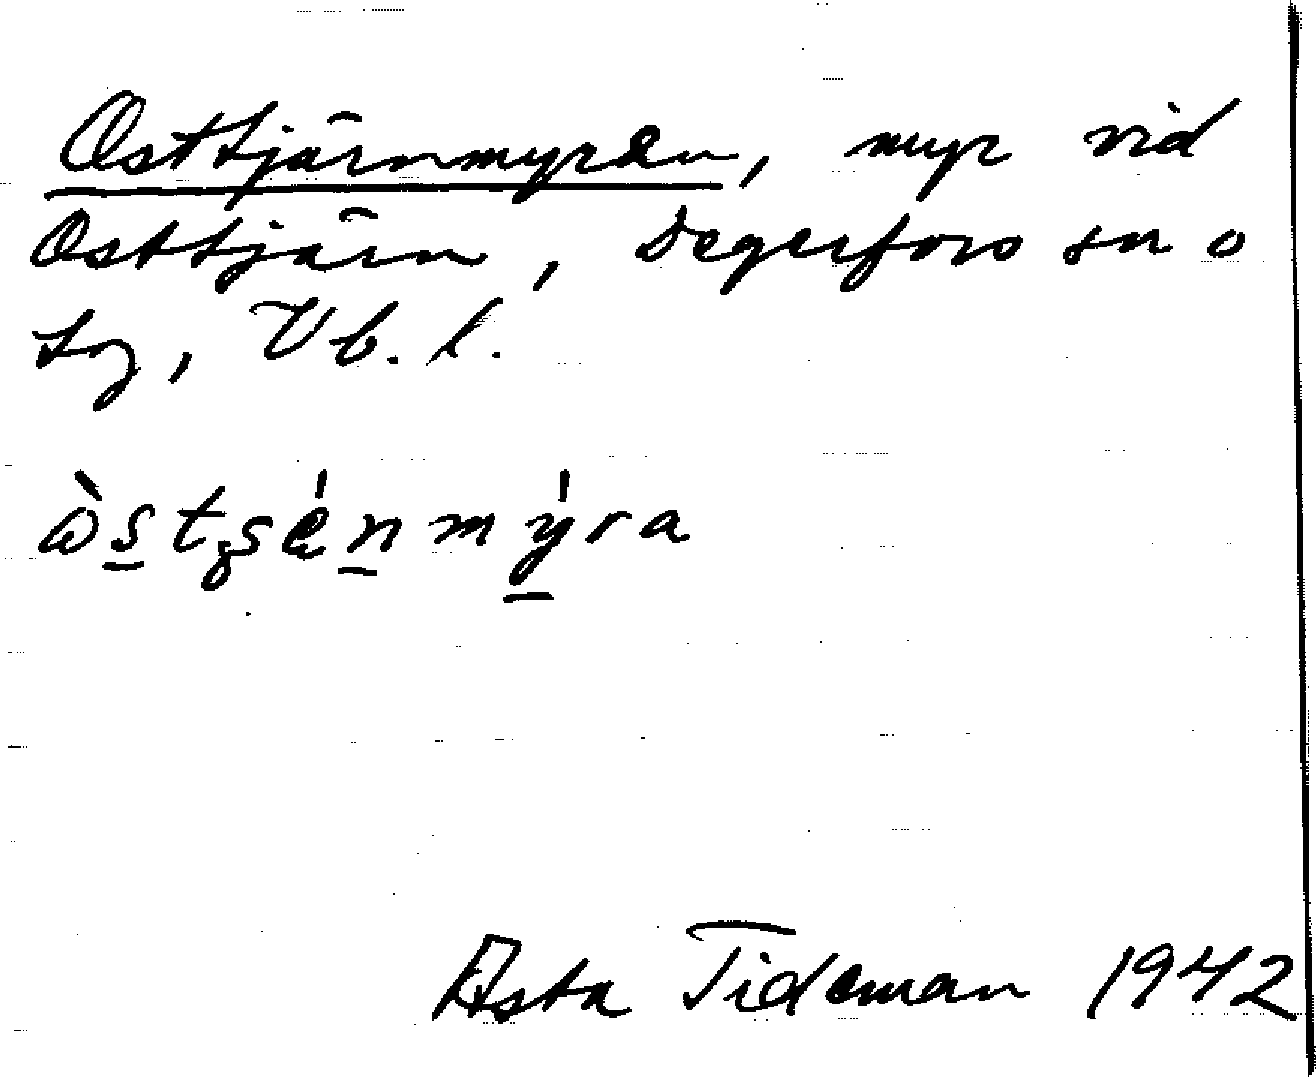 Osttjärnmyren, myr vid
Osttjärn, Degerfors sn o
tg, Vb. l.
ὼstʒsénmýra
Asta Tideman 1942